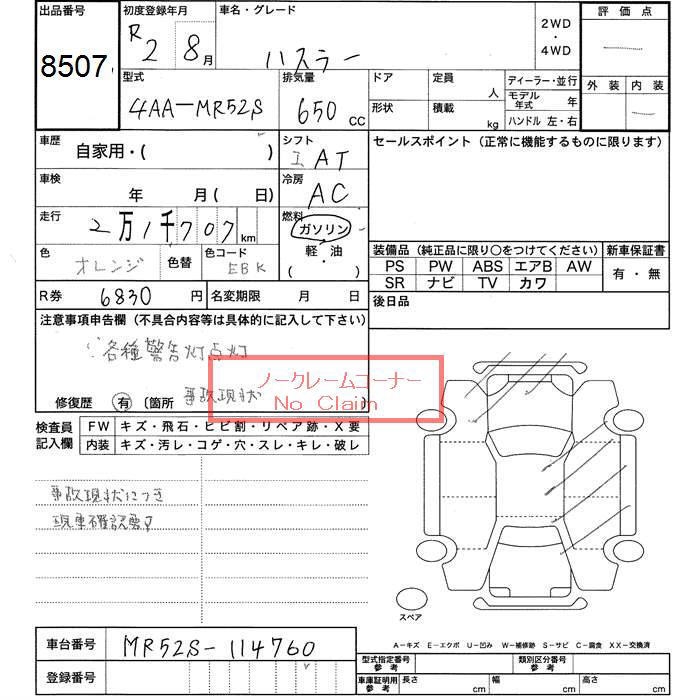 出品番号
8507
初度登録年月
R2 8月
車名・グレード
ハスラー
2WD
・
4WD
評価点
外装 内装
型式
4AA-MR52S
排気量
650 CC
ドア
形状
定員
人
積載
kg
ディーラー・並行
モデル年式 年
ハンドル 左・右
車歴
自家用・( )
シフト
AT
セールスポイント (正常に機能するものに限ります)
車検
年 月( 日)
冷房
AC
走行
2万1千707km
燃料
ガソリン
軽・油
( )
色
オレンジ
色替
色コード
EBK
装備品 (純正品に限り○をつけてください)
新車保証書
PS PW ABS エアB AW
SR ナビ TV カワ
有・無
R券
6830円
名変期限 月 日
後日品
注意事項申告欄 (不具合内容等は具体的に記入して下さい)
各種警告灯点灯
ノークレームコーナー
No Claim
修復歴 有 〔箇所 事故現状
検査員記入欄
FW キズ・飛石・ヒビ割・リペア跡・X要
内装 キズ・汚レ・コゲ・穴・スレ・キレ・破レ
事故現状につき
現車確認要す
スペア
A-キズ E-エクボ U-凹み W-補修跡 S-サビ C-腐食 XX-交換済
車台番号
MR52S-114760
登録番号
型式指定番号 参考
類別区分番号 参考
車庫証明用 参考
長さ cm
幅 cm
高さ cm